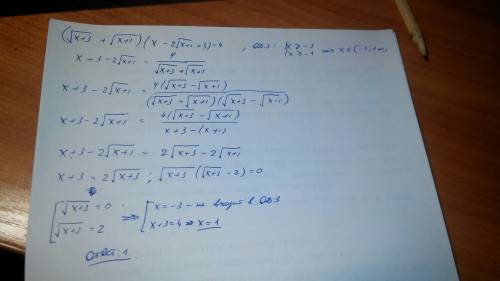 (√x+3 + √x+1)(x - 2√x+1 + 3) = 4 , ОДЗ: { x ≥ -3 x ≥ -1 ⟹ x ∈ [-1; +∞)
x+3-2√x+1 = 4 / (√x+3 + √x+1)
x+3-2√x+1 = 4(√x+3 - √x+1) / (√x+3 + √x+1)(√x+3 - √x-1)
x+3-2√x+1 = 4(√x+3 - √x+1) / x+3-(x+1)
x+3-2√x+1 = 2√x+3 - 2√x+1
x+3 = 2√x+3 ; √x+3 (√x+3 - 2) = 0
[ √x+3 = 0 √x+3 = 2 ⟹ [ x = -3 - не входит в ОДЗ x+3 = 4 ⇒ x = 1
Ответ: 1